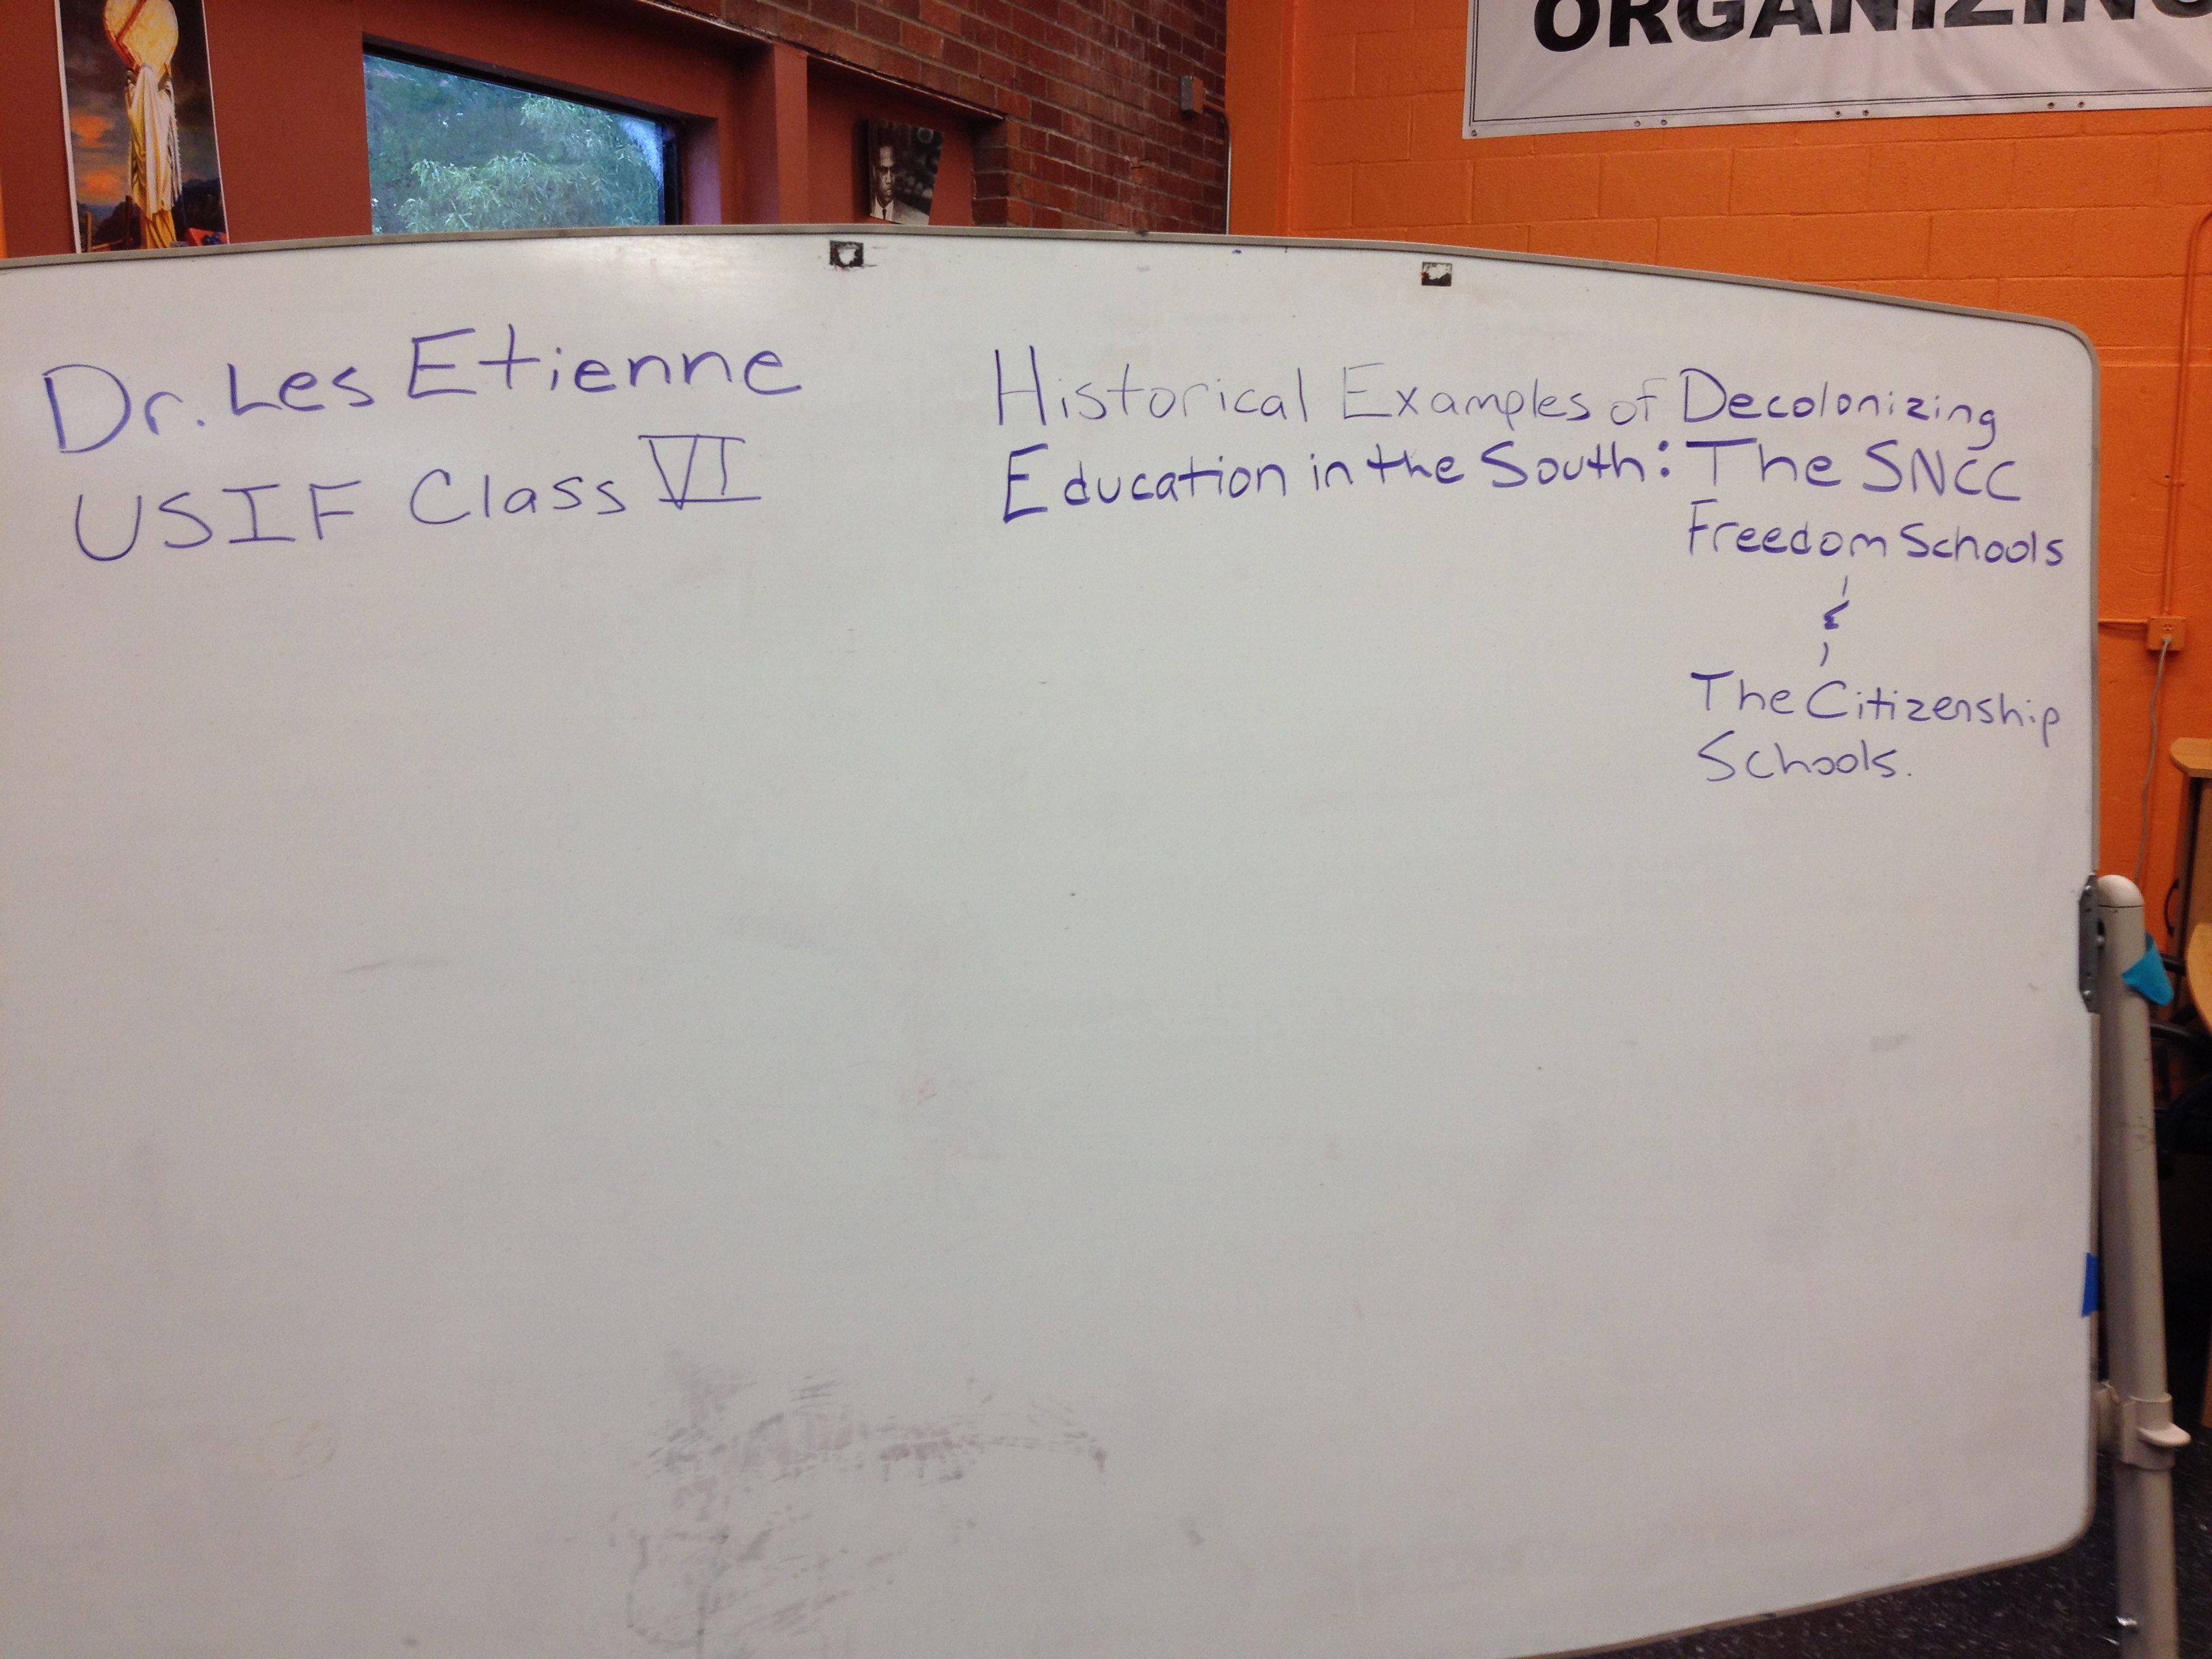 ORGANIZING
Dr. Les Etienne
USIF Class VI
Historical Examples of Decolonizing
Education in the South: The SNCC
Freedom Schools
&
The Citizenship
Schools.